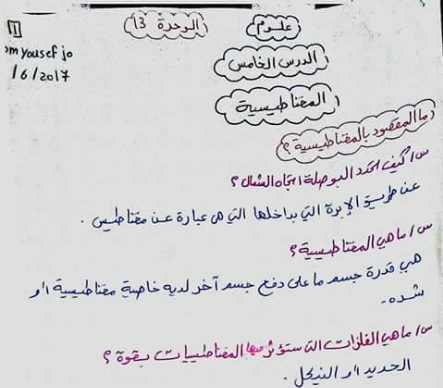 1
علوم
الوحدة 13
om yousef jo
/6/2017
الدرس الخامس
المغناطيسية
ما المقصود بالمغناطيسية ؟
س/ كيف تحدد البوصلة اتجاه الشمال ؟
عن طريق الإبرة التي بداخلها التي هي عبارة عن مغناطيس .
س/ ما هي المغناطيسية ؟
هي قدرة جسم ما على دفع جسم آخر لديه خاصية مغناطيسية او
شده .
س/ ما هي الفلزات التي ستؤثر فيها المغناطيسيات بقوة ؟
الحديد او النيكل .